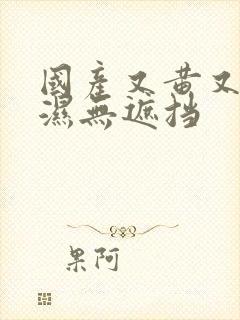 國產又黃又
濕無遮挡
果阿